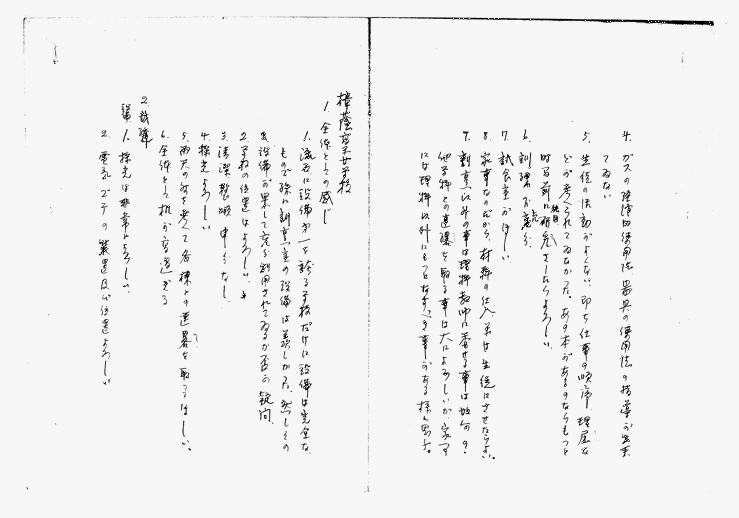 4. ガスの経済的使用法、器具の使用法の指導が出来
てゐない
5. 生徒の活動がよくない、即ち仕事の順序、理屈な
どが考へられてゐなかった。あの本があるのならもっと
する前に研究させたらよろしい。
6. 訓練不充分
7. 試食室がほしい
8. 家事なのだから、材料の仕入 等は生徒にさせたらよい。
9. 割烹以外の事は理科教師に委せる事は如何?
他学科との連絡を取る事は大によろしいが家事
には理科以外にもつとなすべき事がある様に思ふ。
樟蔭高等女学校
1. 全体としての感じ
1. 流石に設備第一を誇る学校だけに設備は完全な
もので殊に割烹室の設備は羨しかった。然しその
設備が果して充分利用されてゐるか否か疑問。
2. 学校の位置はよろしい。
3. 清潔整頓 申分なし
4. 採光よろしい
5. 雨天の時を考へて各棟との連絡を取ってほしい。
6. 全体として机が高過ぎる
2. 割烹
設備
1. 採光は非常によろしい
2. 電気ゴテの装置及び位置よろしい